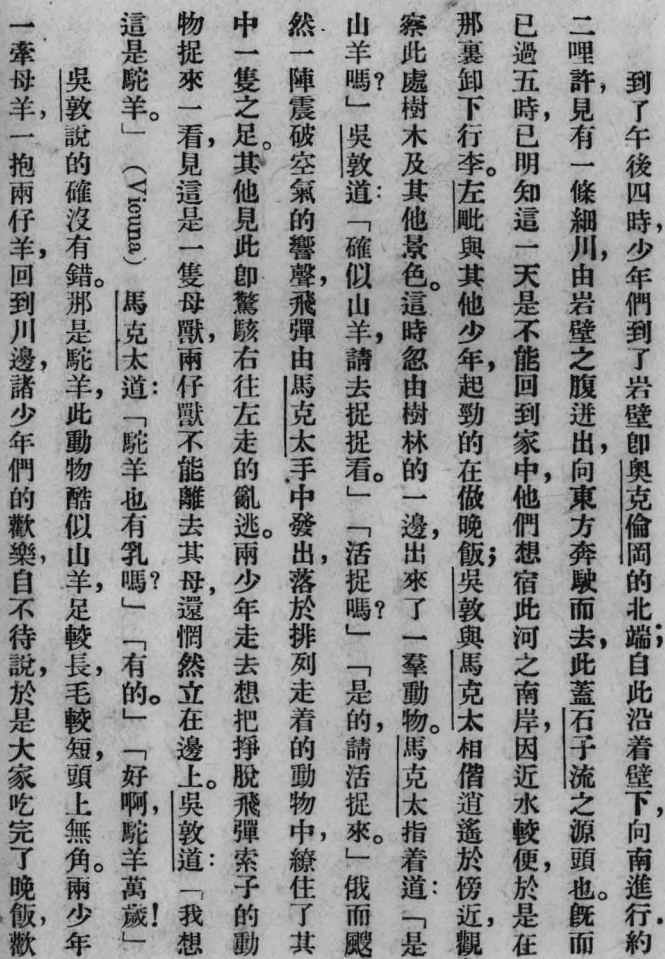 到了午後四時，少年們到了岩壁卽奧克倫岡的北端；自此沿着壁下，向南進行．約
二哩許，見有一條細川，由岩壁之腹迸出，向東方奔駛而去，此蓋石子流之源頭也。旣而
已過五時，已明知這一天是不能回到家中，他們想宿此河之南岸，因近水較便，於是在
那裏卸下行李。左毗與其他少年，起勁的在做晚飯；吳敦與馬克太相偕逍遙於傍近，觀
察此處樹木及其他景色。這時忽由樹林的一邊，出來了一羣動物。馬克太指着道：「是
山羊嗎？」吳敦道：「確似山羊，請去捉捉看。」「活捉嗎？」「是的，請活捉來。」俄而颼
然一陣震破空氣的響聲，飛彈由馬克太手中發出，落於排列走着的動物中，繚住了其
中一隻之足。其他見此卽驚駭右往左走的亂逃。兩少年走去想把掙脫飛彈索子的動
物捉來一看，見這是一隻母獸，兩仔獸不能離去其母，還惘然立在邊上。吳敦道：「我想
這是駝羊。」（Viouna）馬克太道：「駝羊也有乳嗎？」「有的。」「好啊，駝羊萬歲！」
吳敦說的確沒有錯。那是駝羊，此動物酷似山羊，足較長，毛較短，頭上無角。兩少年
一牽母羊，一抱兩仔羊，回到川邊，諸少年們的歡樂，自不待說，於是大家吃完了晚飯，歡